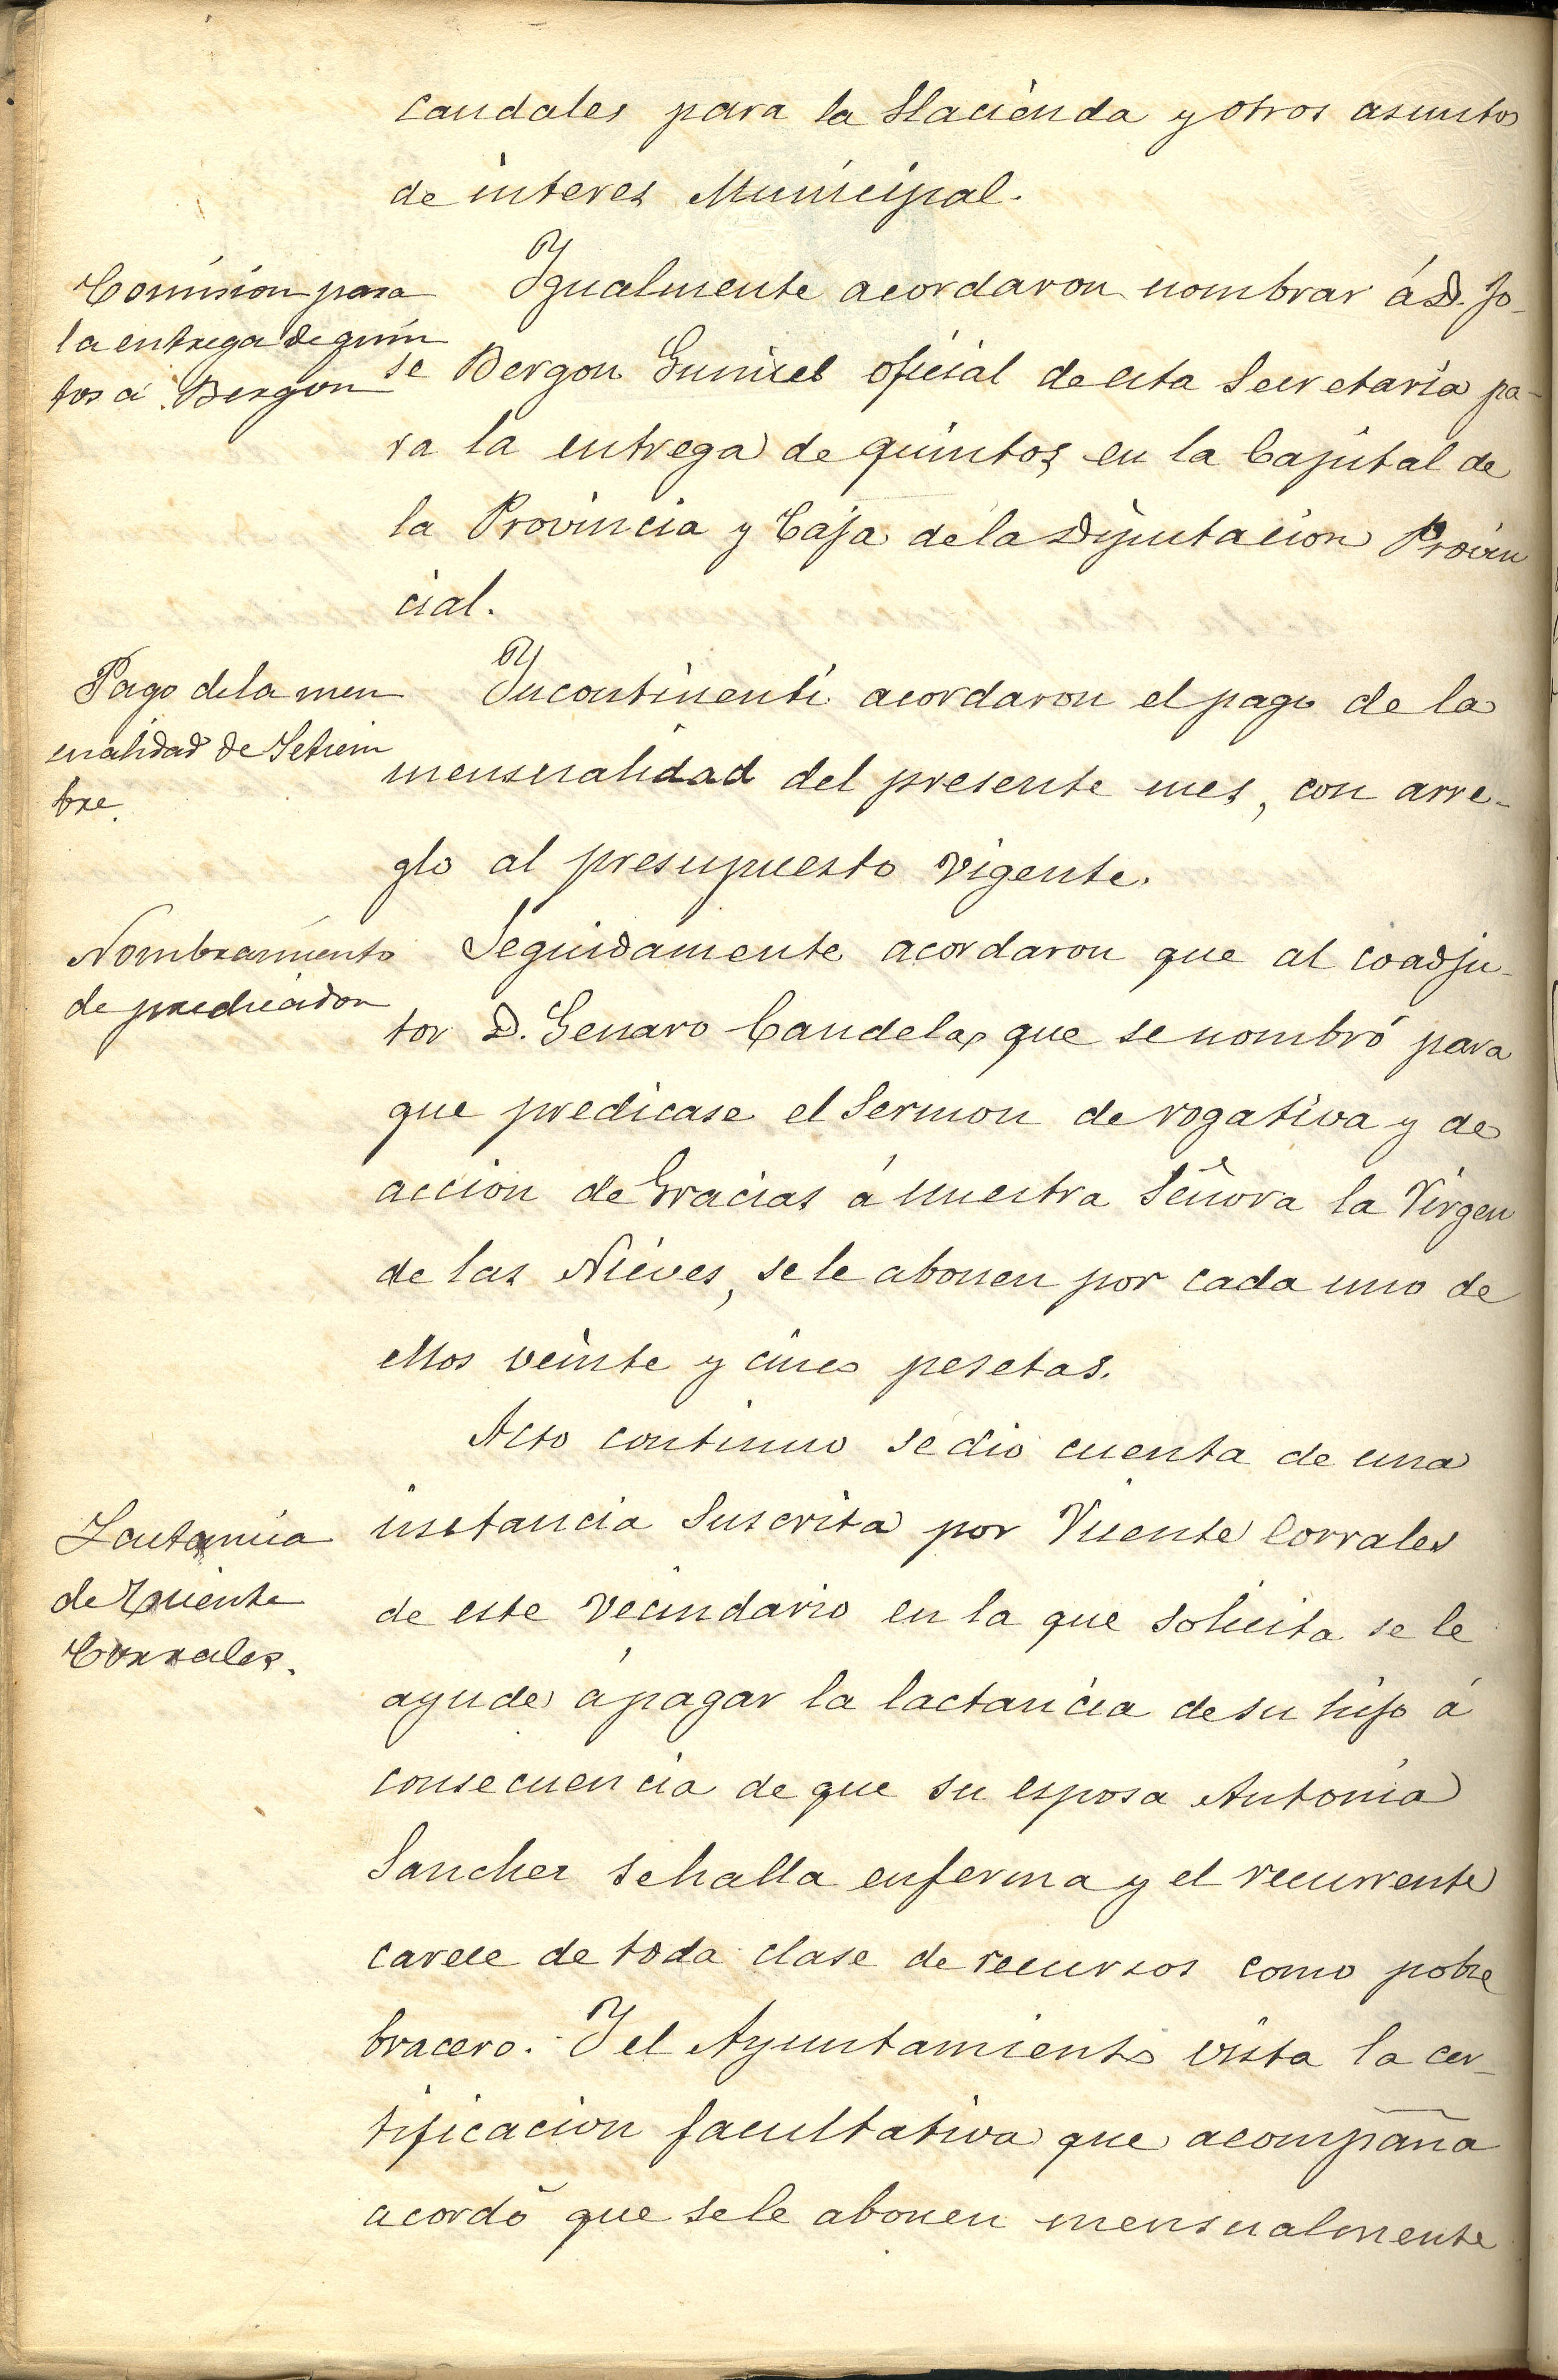 caudales para la Hacienda y otros asuntos
de interes Municipal.
Comision para
la entrega de quin
tos a Bergon
Igualmente acordaron nombrar á D. Jo-
se Bergon Gumiel oficial de esta Secretaria pa-
ra la entrega de quintos en la Capital de
la Provincia y Caja de la Diputacion Provin
cial.
Pago de la men
sualidad de Setiem
bre.
Incontinenti acordaron el pago de la
mensualidad del presente mes, con arre-
glo al presupuesto vigente.
Nombramiento
de predicador
Seguidamente acordaron que al coadju-
tor D. Genaro Candelas que se nombró para
que predicase el Sermon de rogativa y de
accion de Gracias á Nuestra Señora la Virgen
de las Nieves, se le abonen por cada uno de
ellos veinte y cinco pesetas.
Acto continuo se dió cuenta de una
Lactancia
de Vicente
Corrales.
instancia suscrita por Vicente Corrales
de este vecindario en la que solicita se le
ayude á pagar la lactancia de su hijo á
consecuencia de que su esposa Antonia
Sanchez se halla enferma y el recurrente
carece de toda clase de recursos como pobre
bracero. Y el Ayuntamiento vista la cer-
tificacion facultativa que acompaña
acordó que se le abonen mensualmente